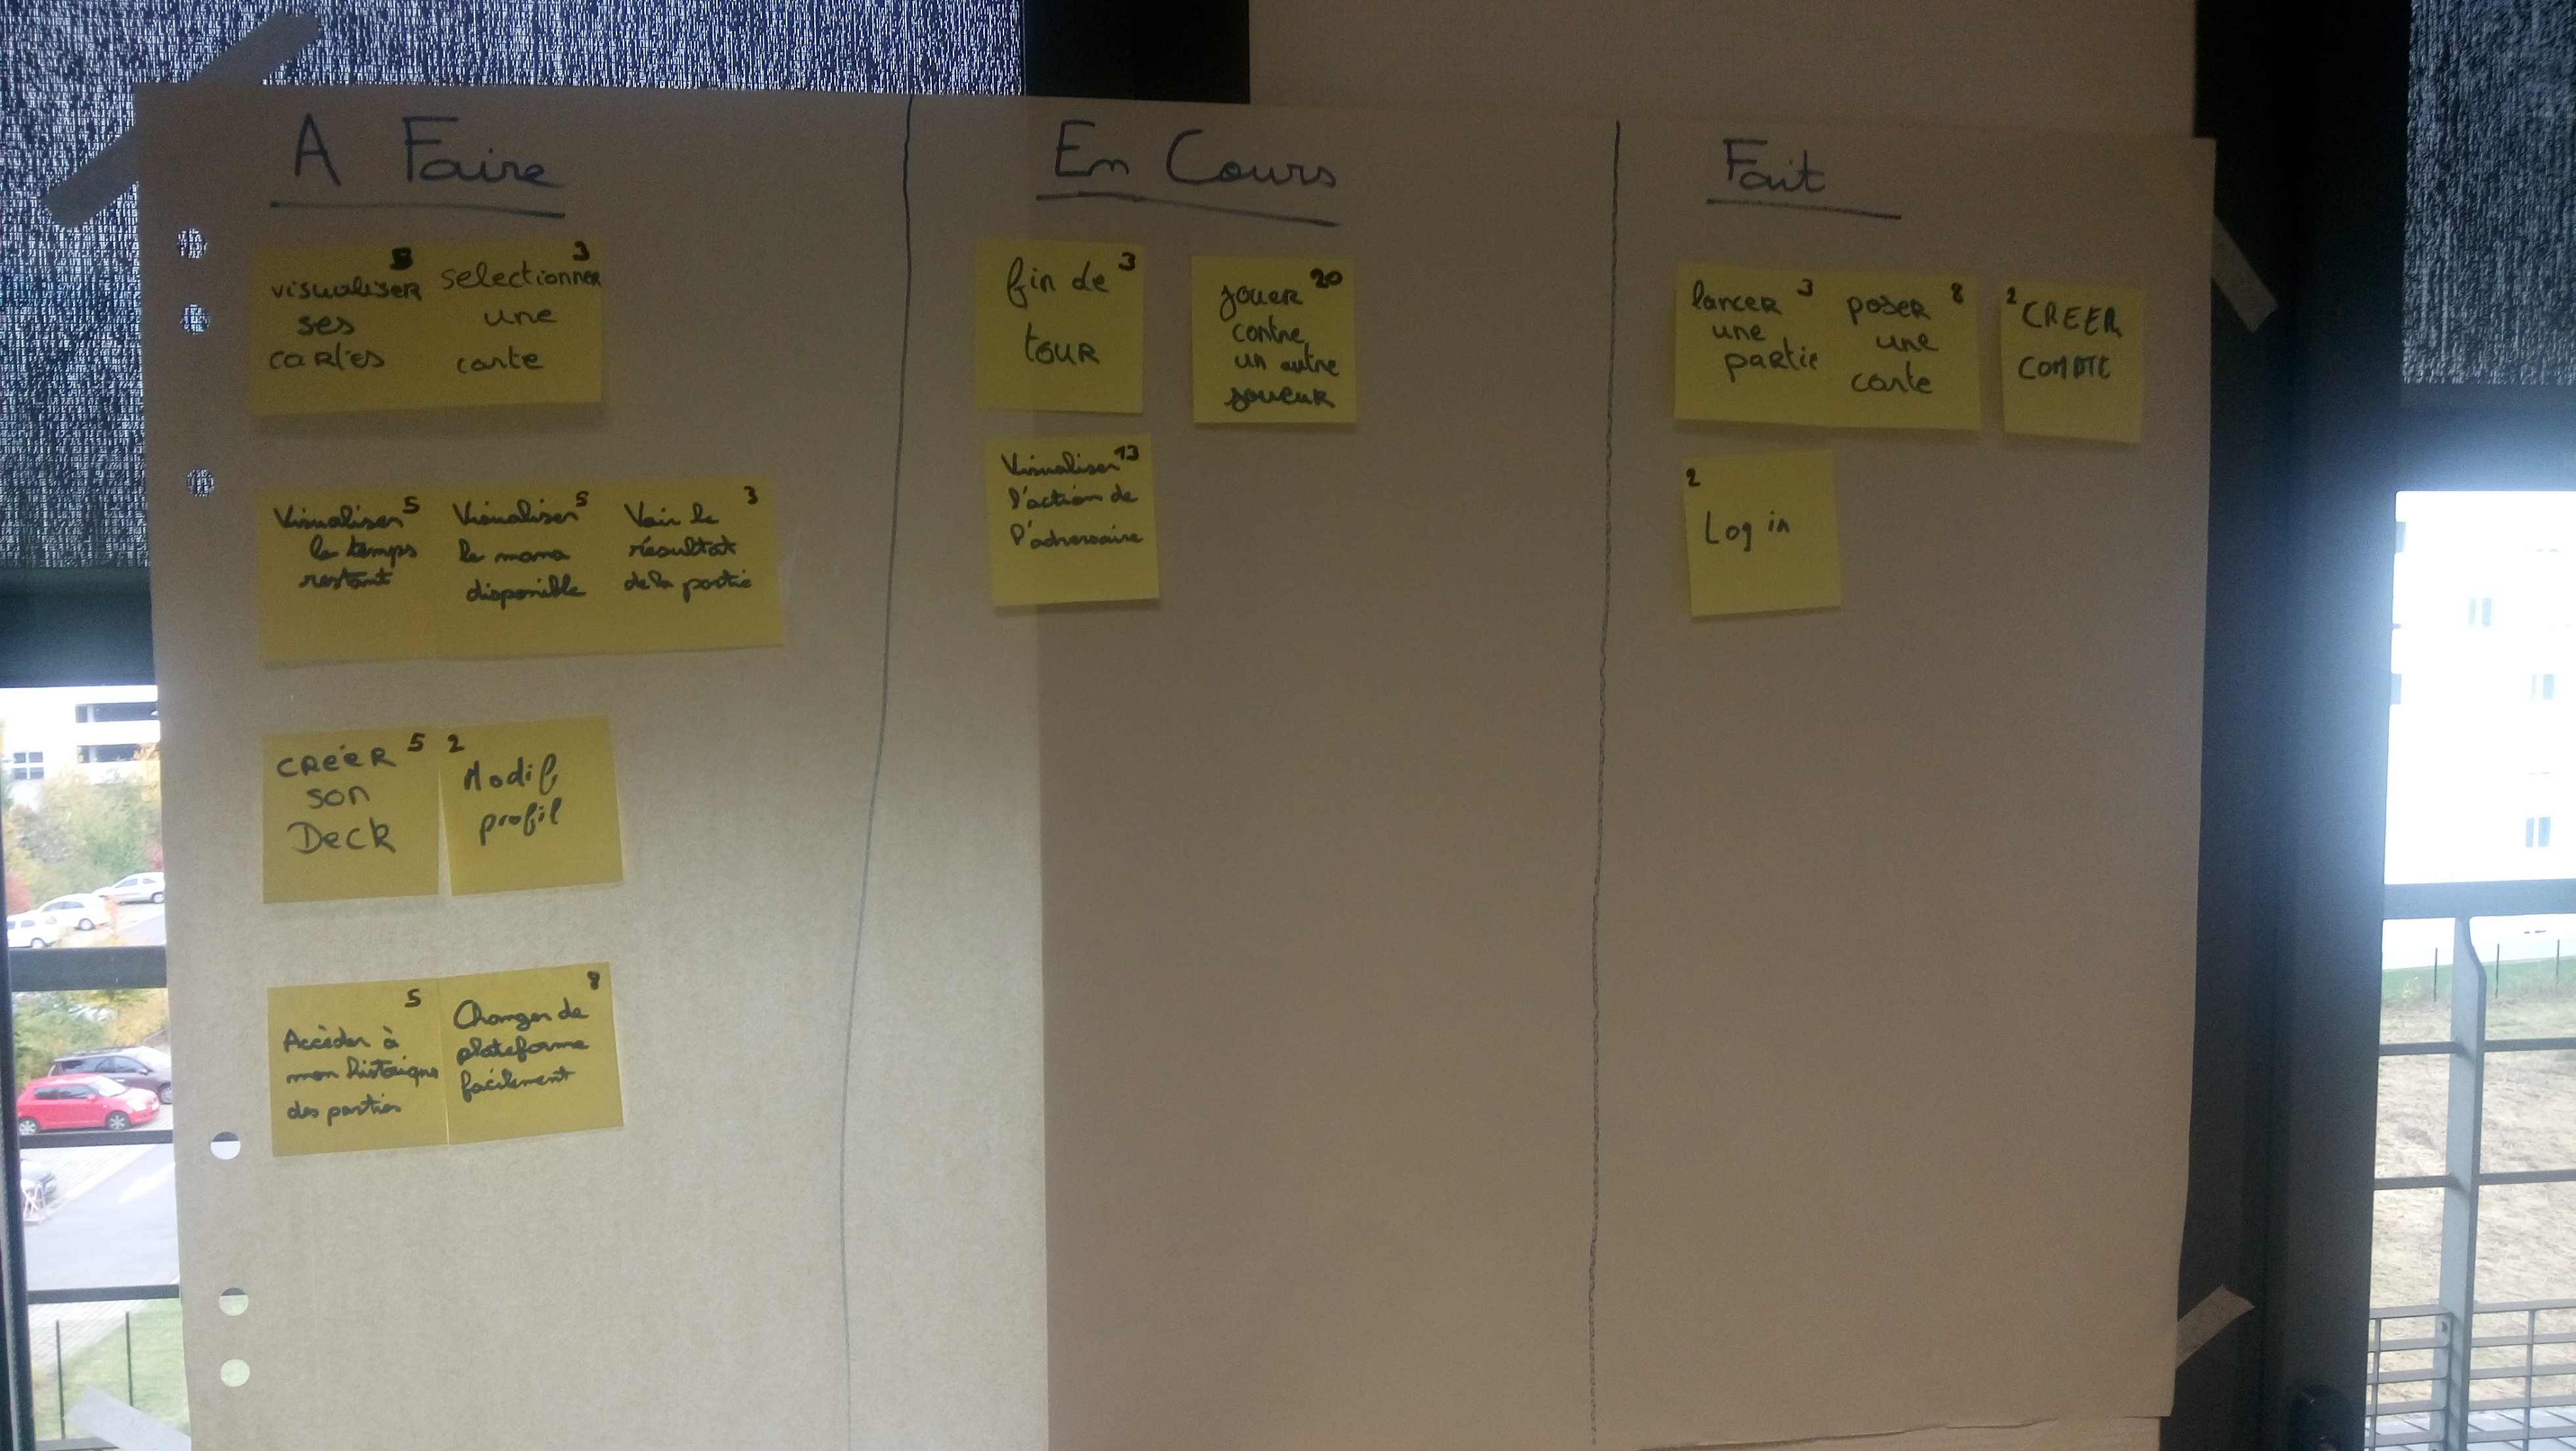 A Faire
5
visualiser
ses
cartes
3
selectionner
une
carte
Visualiser 5
le temps
restant
Visualiser 5
le mana
disponible
3
Voir le
résultat
de la partie
créer 5
son
Deck
2
Modif
profil
5
Accéder à
mon historique
des parties
8
Changer de
plateforme
facilement
En Cours
fin de 3
tour
jouer 20
contre
un autre
joueur
Visualiser 13
l'action de
l'adversaire
Fait
lancer 3
une
partie
poser 8
une
carte
2 CREER
COMPTE
2
Log in